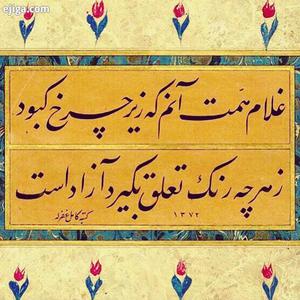 ejiga.com
غلام همّت آنم که زیر چرخ کبود
ز هر چه رنگ تعلق بگیرد آزاد است
کتبه کامل غفرله
۱۳۷۲